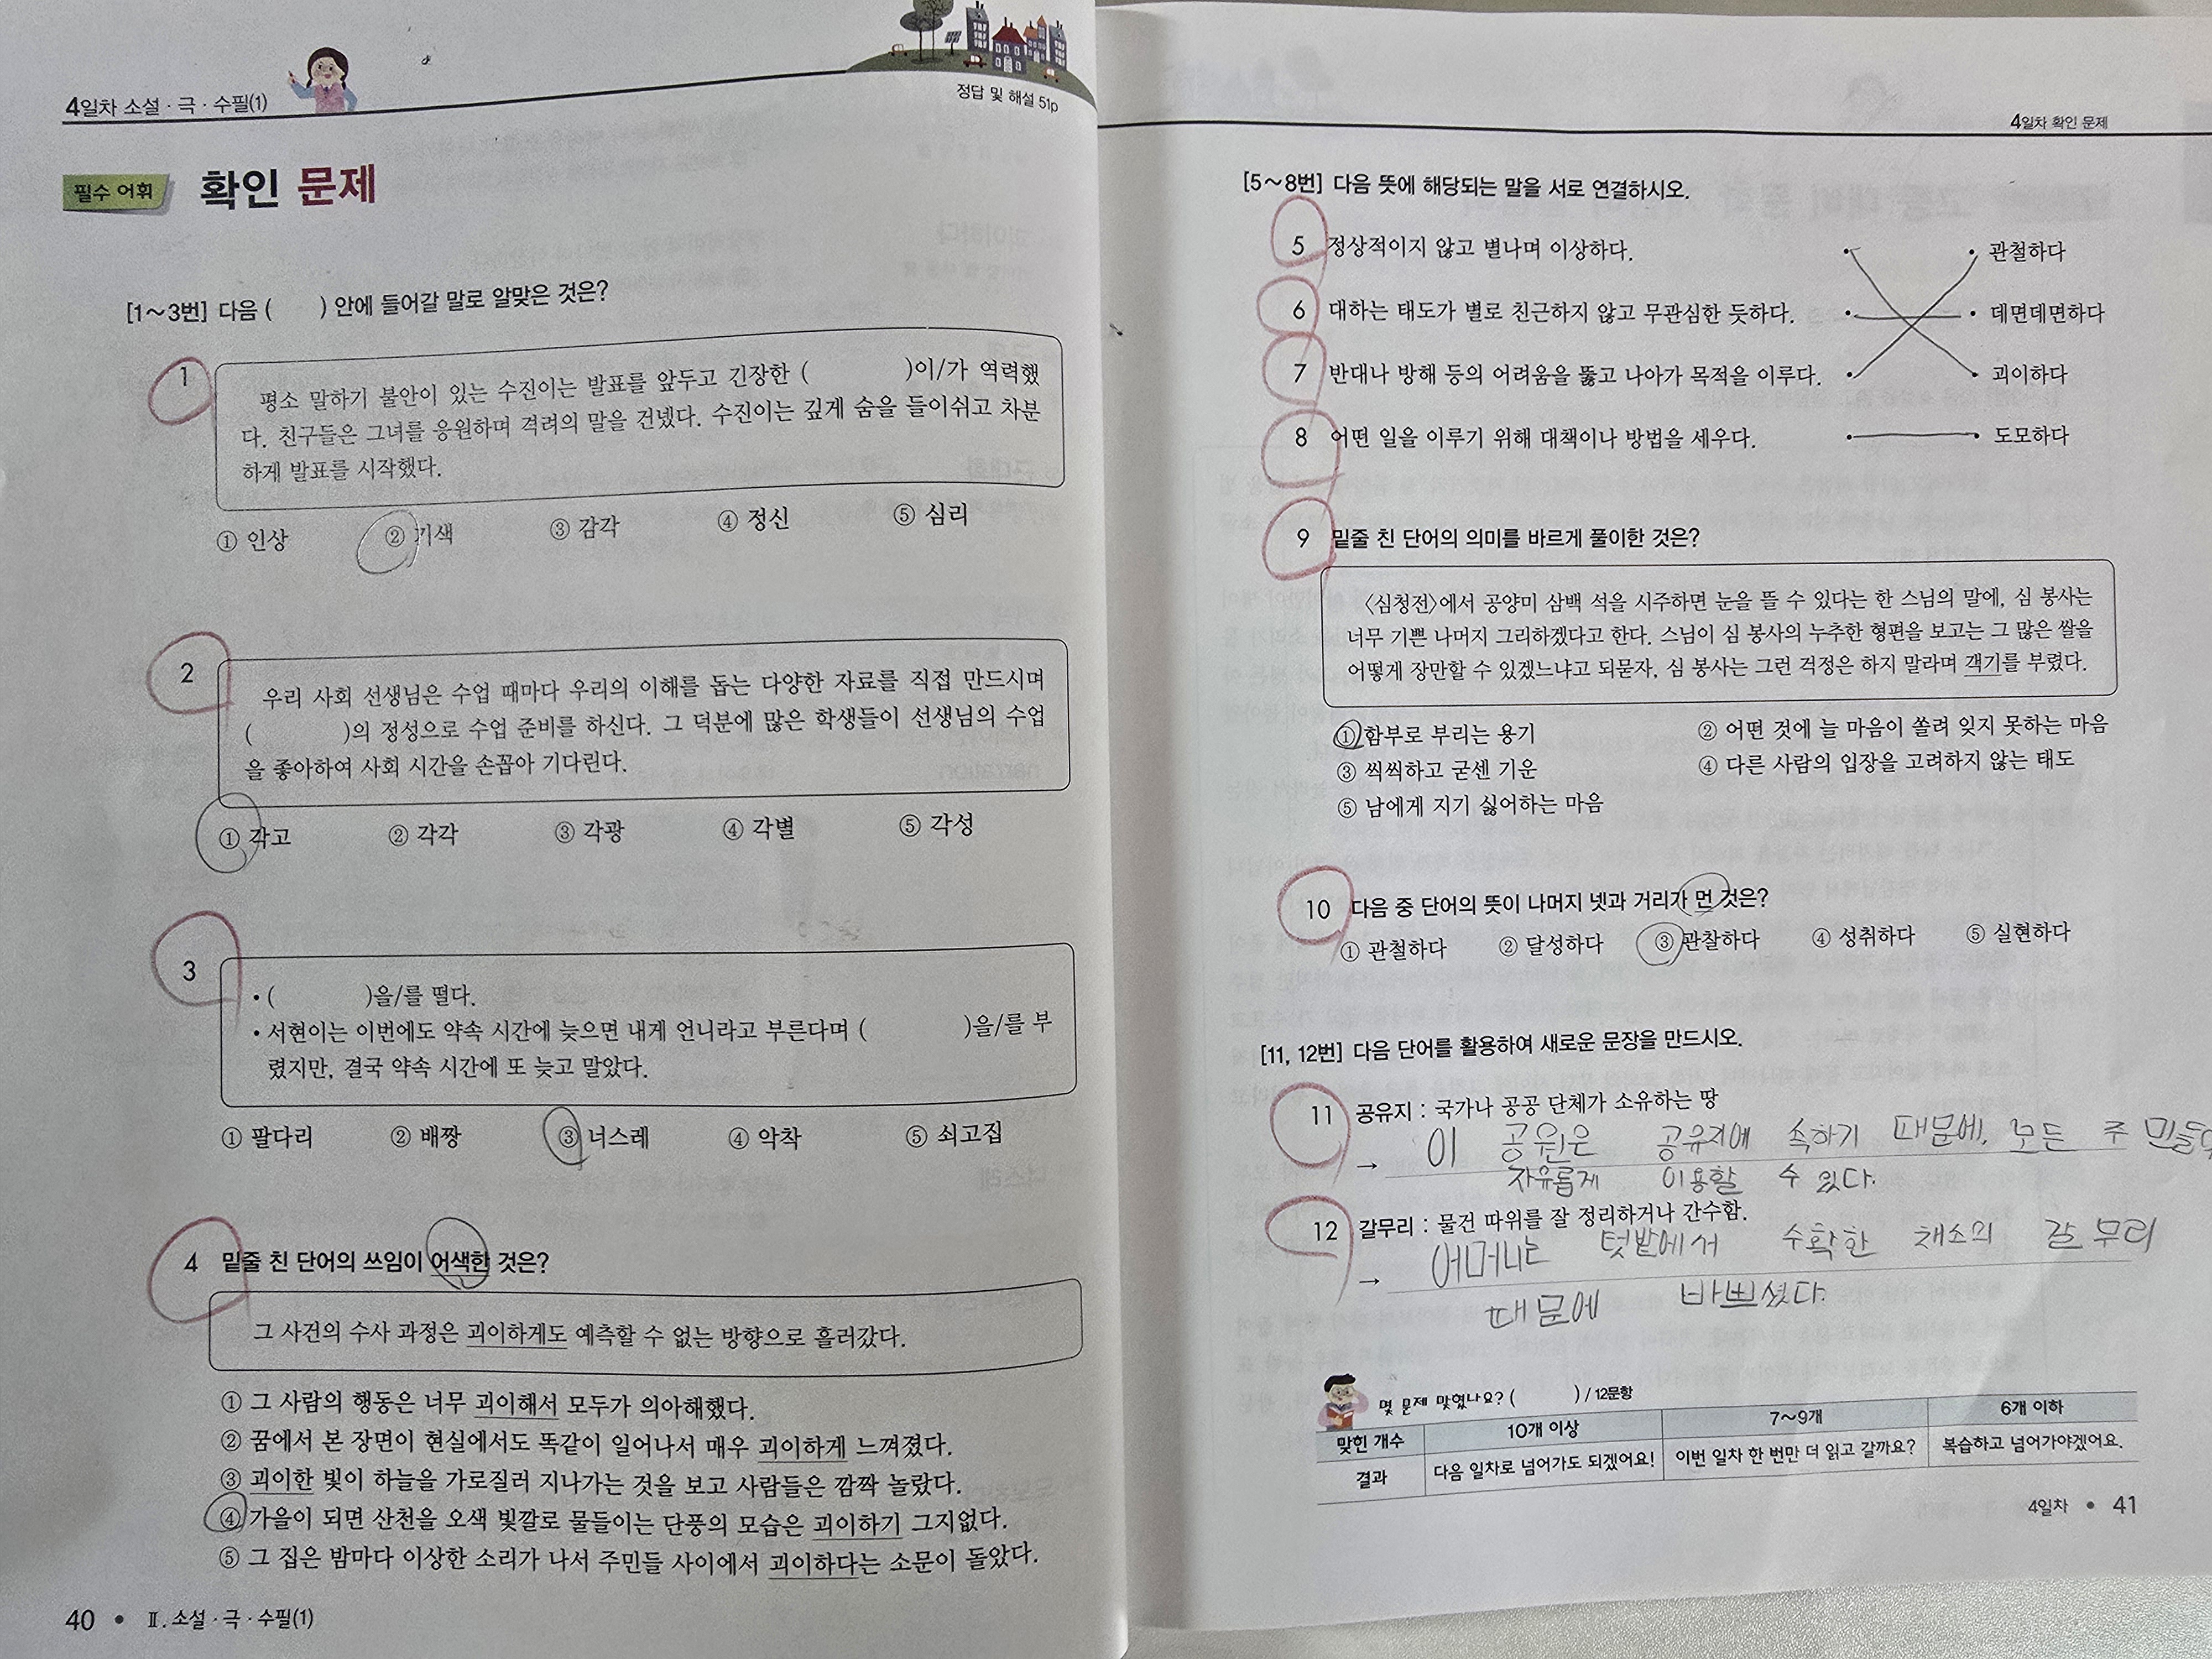 4일차 소설·극·수필(1)
정답 및 해설 51p
필수 어휘 확인 문제
[1~3번] 다음 ( ) 안에 들어갈 말로 알맞은 것은?
1
평소 말하기 불안이 있는 수진이는 발표를 앞두고 긴장한 ( )이/가 역력했
다. 친구들은 그녀를 응원하며 격려의 말을 건넸다. 수진이는 깊게 숨을 들이쉬고 차분
하게 발표를 시작했다.
① 인상 ② 기색 ③ 감각 ④ 정신 ⑤ 심리
2
우리 사회 선생님은 수업 때마다 우리의 이해를 돕는 다양한 자료를 직접 만드시며
( )의 정성으로 수업 준비를 하신다. 그 덕분에 많은 학생들이 선생님의 수업
을 좋아하여 사회 시간을 손꼽아 기다린다.
① 각고 ② 각각 ③ 각광 ④ 각별 ⑤ 각성
3
• ( )을/를 떨다.
• 서현이는 이번에도 약속 시간에 늦으면 내게 언니라고 부른다며 ( )을/를 부
렸지만, 결국 약속 시간에 또 늦고 말았다.
① 팔다리 ② 배짱 ③ 너스레 ④ 악착 ⑤ 쇠고집
4 밑줄 친 단어의 쓰임이 어색한 것은?
그 사건의 수사 과정은 괴이하게도 예측할 수 없는 방향으로 흘러갔다.
① 그 사람의 행동은 너무 괴이해서 모두가 의아해했다.
② 꿈에서 본 장면이 현실에서도 똑같이 일어나서 매우 괴이하게 느껴졌다.
③ 괴이한 빛이 하늘을 가로질러 지나가는 것을 보고 사람들은 깜짝 놀랐다.
④ 가을이 되면 산천을 오색 빛깔로 물들이는 단풍의 모습은 괴이하기 그지없다.
⑤ 그 집은 밤마다 이상한 소리가 나서 주민들 사이에서 괴이하다는 소문이 돌았다.
40 • Ⅱ. 소설·극·수필(1)
4일차 확인 문제
[5~8번] 다음 뜻에 해당되는 말을 서로 연결하시오.
5 정상적이지 않고 별나며 이상하다. • • 관철하다
6 대하는 태도가 별로 친근하지 않고 무관심한 듯하다. • • 데면데면하다
7 반대나 방해 등의 어려움을 뚫고 나아가 목적을 이루다. • • 괴이하다
8 어떤 일을 이루기 위해 대책이나 방법을 세우다. • • 도모하다
9 밑줄 친 단어의 의미를 바르게 풀이한 것은?
〈심청전〉에서 공양미 삼백 석을 시주하면 눈을 뜰 수 있다는 한 스님의 말에, 심 봉사는
너무 기쁜 나머지 그리하겠다고 한다. 스님이 심 봉사의 누추한 형편을 보고는 그 많은 쌀을
어떻게 장만할 수 있겠느냐고 되묻자, 심 봉사는 그런 걱정은 하지 말라며 객기를 부렸다.
① 함부로 부리는 용기 ② 어떤 것에 늘 마음이 쏠려 잊지 못하는 마음
③ 씩씩하고 굳센 기운 ④ 다른 사람의 입장을 고려하지 않는 태도
⑤ 남에게 지기 싫어하는 마음
10 다음 중 단어의 뜻이 나머지 넷과 거리가 먼 것은?
① 관철하다 ② 달성하다 ③ 관찰하다 ④ 성취하다 ⑤ 실현하다
[11, 12번] 다음 단어를 활용하여 새로운 문장을 만드시오.
11 공유지 : 국가나 공공 단체가 소유하는 땅
→ 이 공원은 공유지에 속하기 때문에, 모든 주민들
자유롭게 이용할 수 있다.
12 갈무리 : 물건 따위를 잘 정리하거나 간수함.
→ 어머니는 텃밭에서 수확한 채소의 갈무리
때문에 바쁘셨다.
몇 문제 맞혔나요? ( ) / 12문항
맞힌 개수 10개 이상 7~9개 6개 이하
결과 다음 일차로 넘어가도 되겠어요! 이번 일차 한 번만 더 읽고 갈까요? 복습하고 넘어가야겠어요.
4일차 • 41